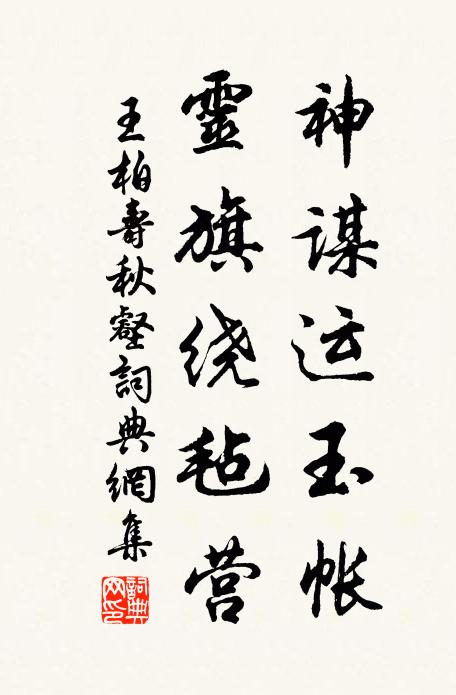 神谋运玉帐
靈旗绕毡营
王柏壽秋壑詞典網集
詞典網印